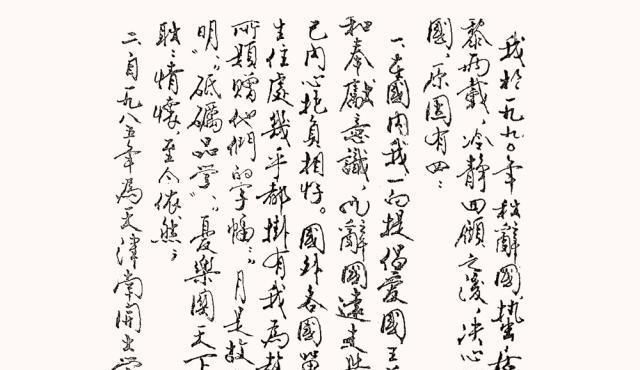 我於一九九〇年秋辭國,蟄居
黎兩載,冷靜回顧之後,决心
國,原因有四:
一、在國内我一向提倡愛國主
和奉獻意識,此辭國遠走
己内心抱負相悖。國外各國留
生住處幾乎都掛有我為
所題贈他們的字幅:“月是故
明”,“砥礪品學”,“憂樂關天下
耿耿情懷,至今依然;
二、自一九八五年為天津南開大學